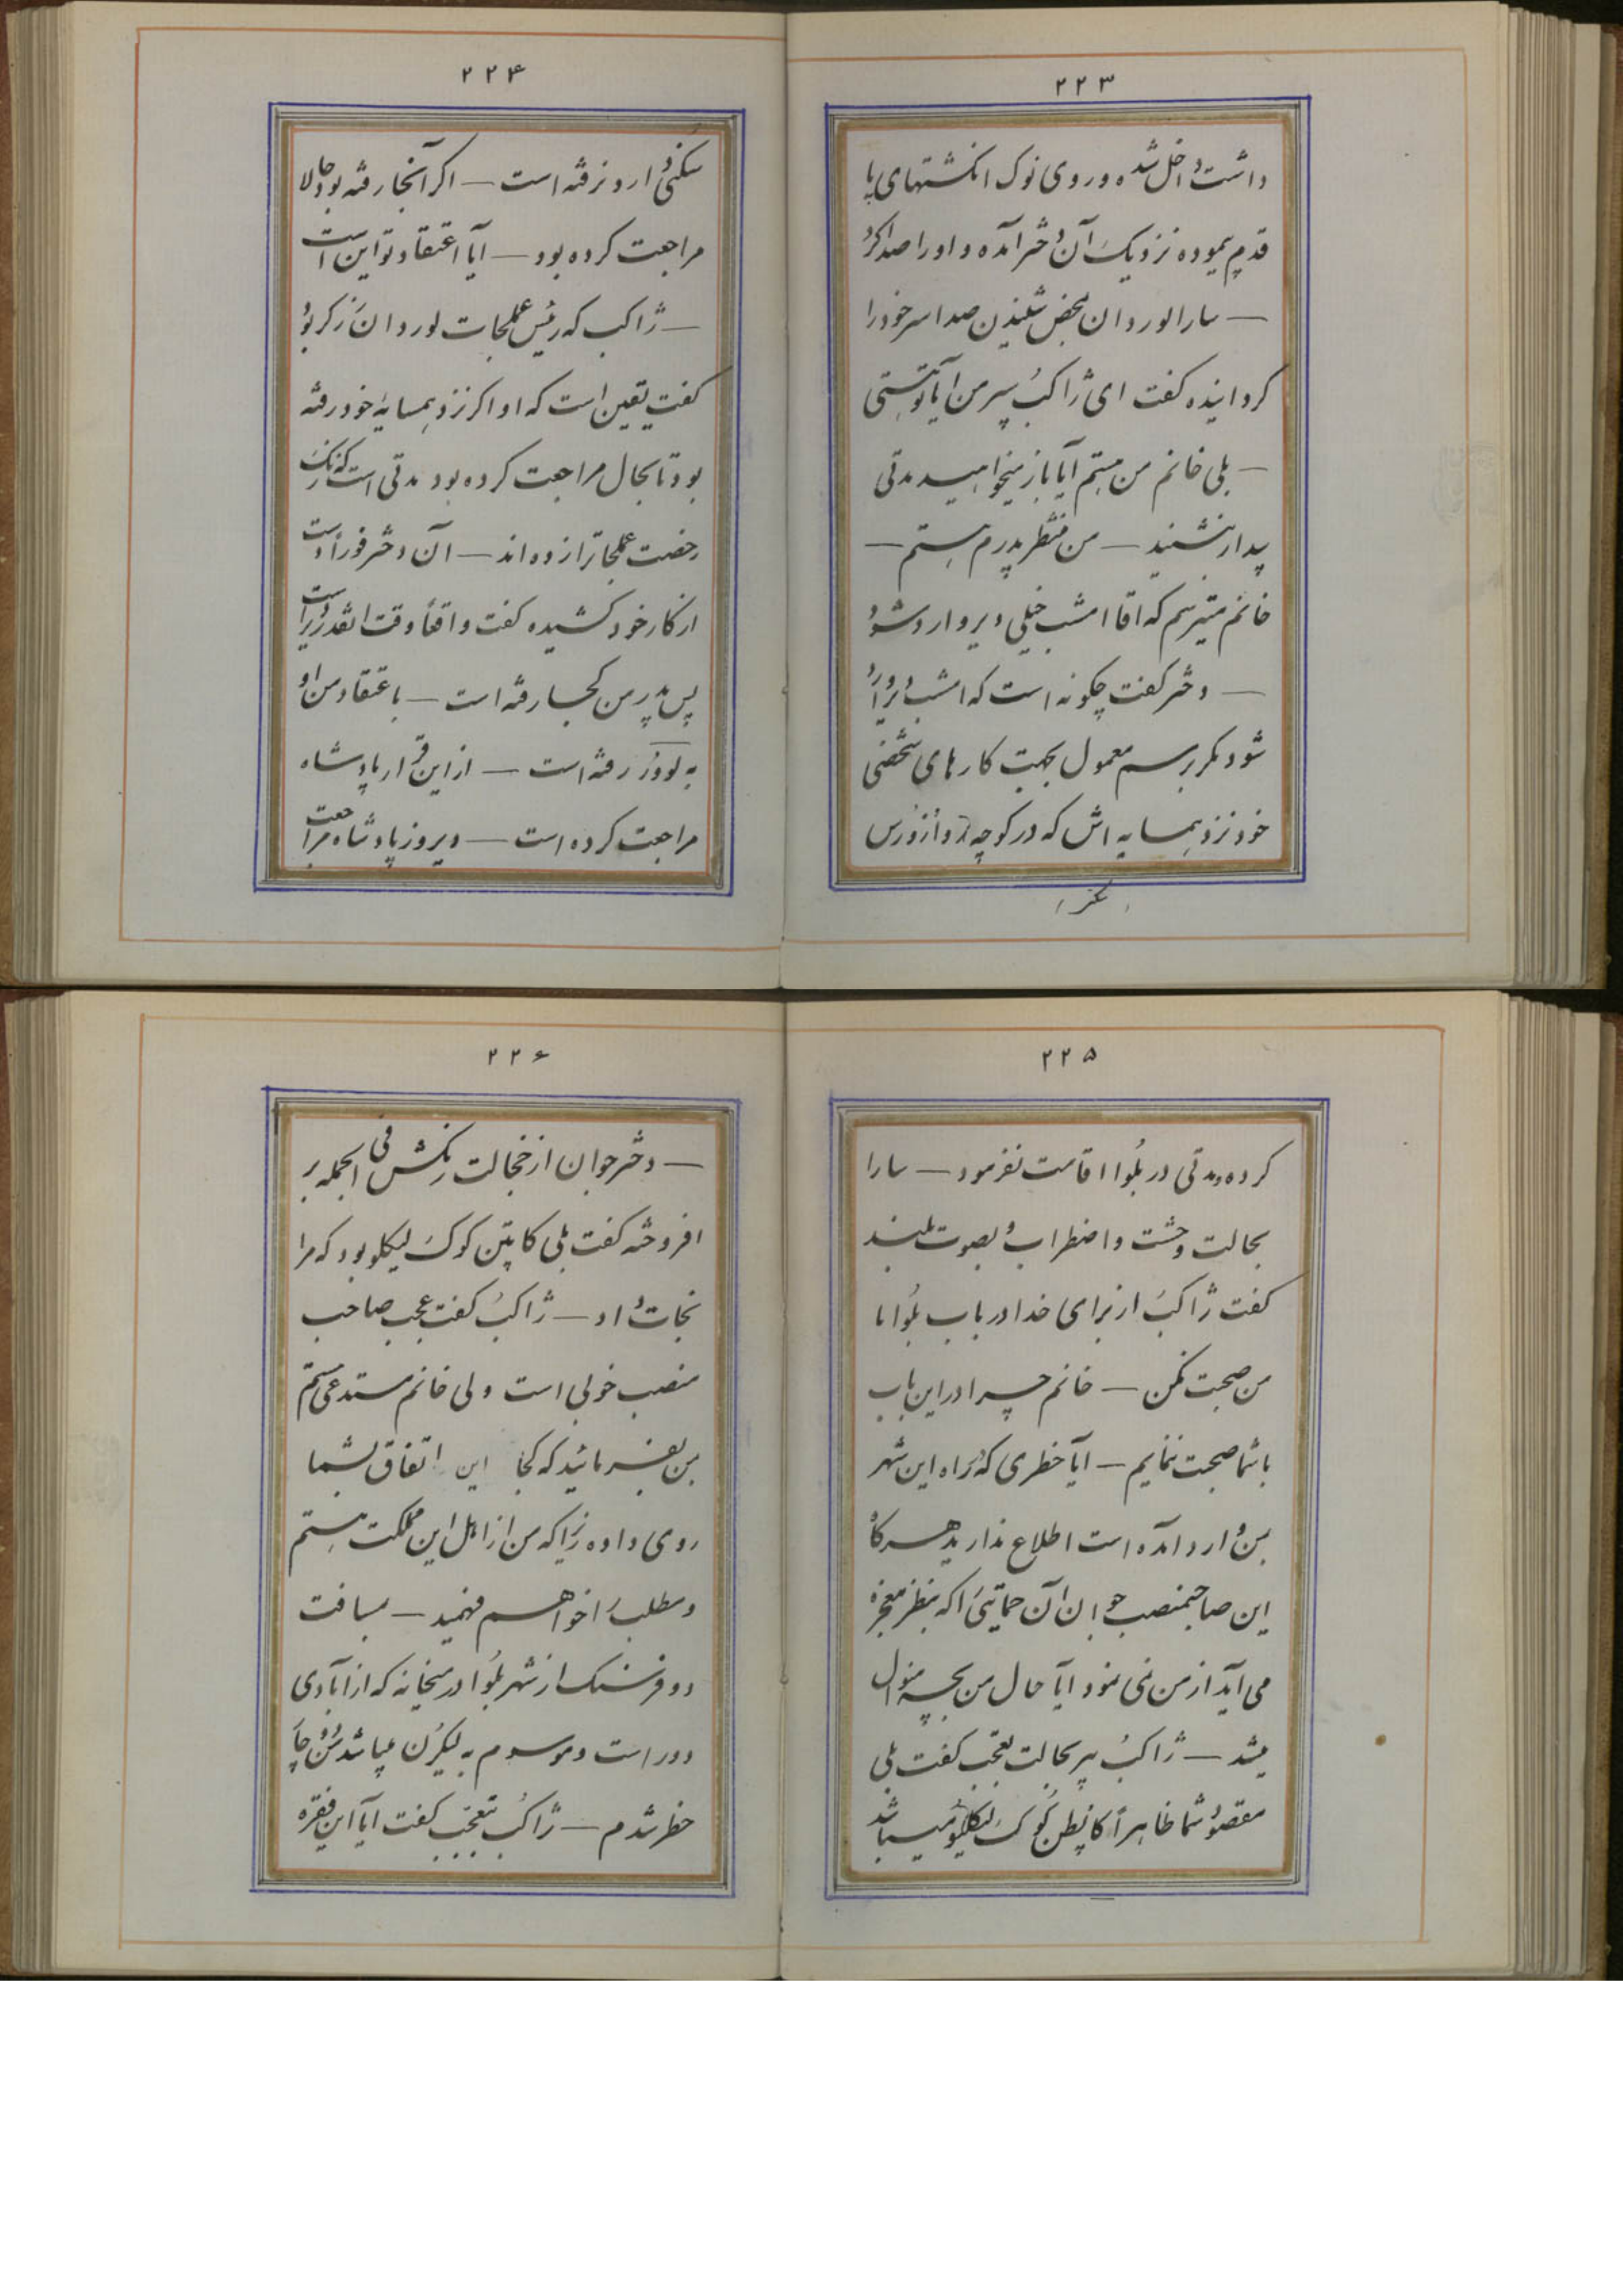 ۲۲۳
داشت داخل شده و روی نوک انکشتهای پا
قدم پیموده نزدیک آن دختر آمده و او را صدا کرد
— سارالوردان بمحض شنیدن صدا سر خود را
کردانیده کفت ای ژاکب پیر من آیا تو هستی
— بلی خانم من هستم آیا باز میخواهید مدتی
بیدار بنشینید — من منتظر پدرم هستم —
خانم میترسم که اقا امشب خیلی دیر وارد شود
— دختر کفت چکونه است که امشب دیر وارد
شود مکر برسم معمول بجهت کارهای شخصی
خود نزد همسایه اش که در کوچه
سکنی دارد نرفته است — اکر آنجا رفته بود حالا
۲۲۴
مراجعت کرده بود — آیا اعتقاد تو این است
— ژاکب که رئیس عملجات لوردان زرکر بود
کفت یقین است که او اکر نزد همسایه خود رفته
بود تا بحال مراجعت کرده بود مدتی است که زنک
رخصت عملجات را زده اند — آن دختر فوراً دست
از کار خود کشیده کفت واقعاً وقت انقدر دیر است
پس پدر من کجا رفته است — باعتقاد من او
به لوور رفته است — از این قرار پادشاه
مراجعت کرده است — دیروز پادشاه مراجعت
۲۲۵
کرده و مدتی در بلوا اقامت نفرمود — سارا
بحالت وحشت و اضطراب و بصوت بلند
کفت ژاکب از برای خدا در باب بلوا با
من صحبت نکن — خانم چرا در این باب
با شما صحبت ننمایم — آیا خطری که در راه این شهر
بمن وارد آمده است اطلاع ندارید هر کاه
این صاحبمنصب جوان آن حمایتی را که بنظر معجزه
می آید از من نمی نمود آیا حال من بچه منوال
میشد — ژاکب پیر بحالت تعجب کفت بلی
مقصود شما ظاهراً کاپطن کوک لیکلو میباشد
۲۲۶
— دختر جوان از خجالت رنکش فی الجمله بر
افروخته کفت بلی کاپتن کوک لیکلو بود که مرا
نجات داد — ژاکب کفت عجب صاحب
منصب خوبی است ولی خانم مستدعی هستم
بمن بفرمائید که کجا این اتفاق بشما
روی داده زیرا که من از اهل این مملکت هستم
و مطلب را خواهم فهمید — بمسافت
دو فرسنک از شهر بلوا در میخانه که از آبادی
دور است و موسوم به میباشد من دچار
خطر شدم — ژاکب بتعجب کفت آیا این فقره